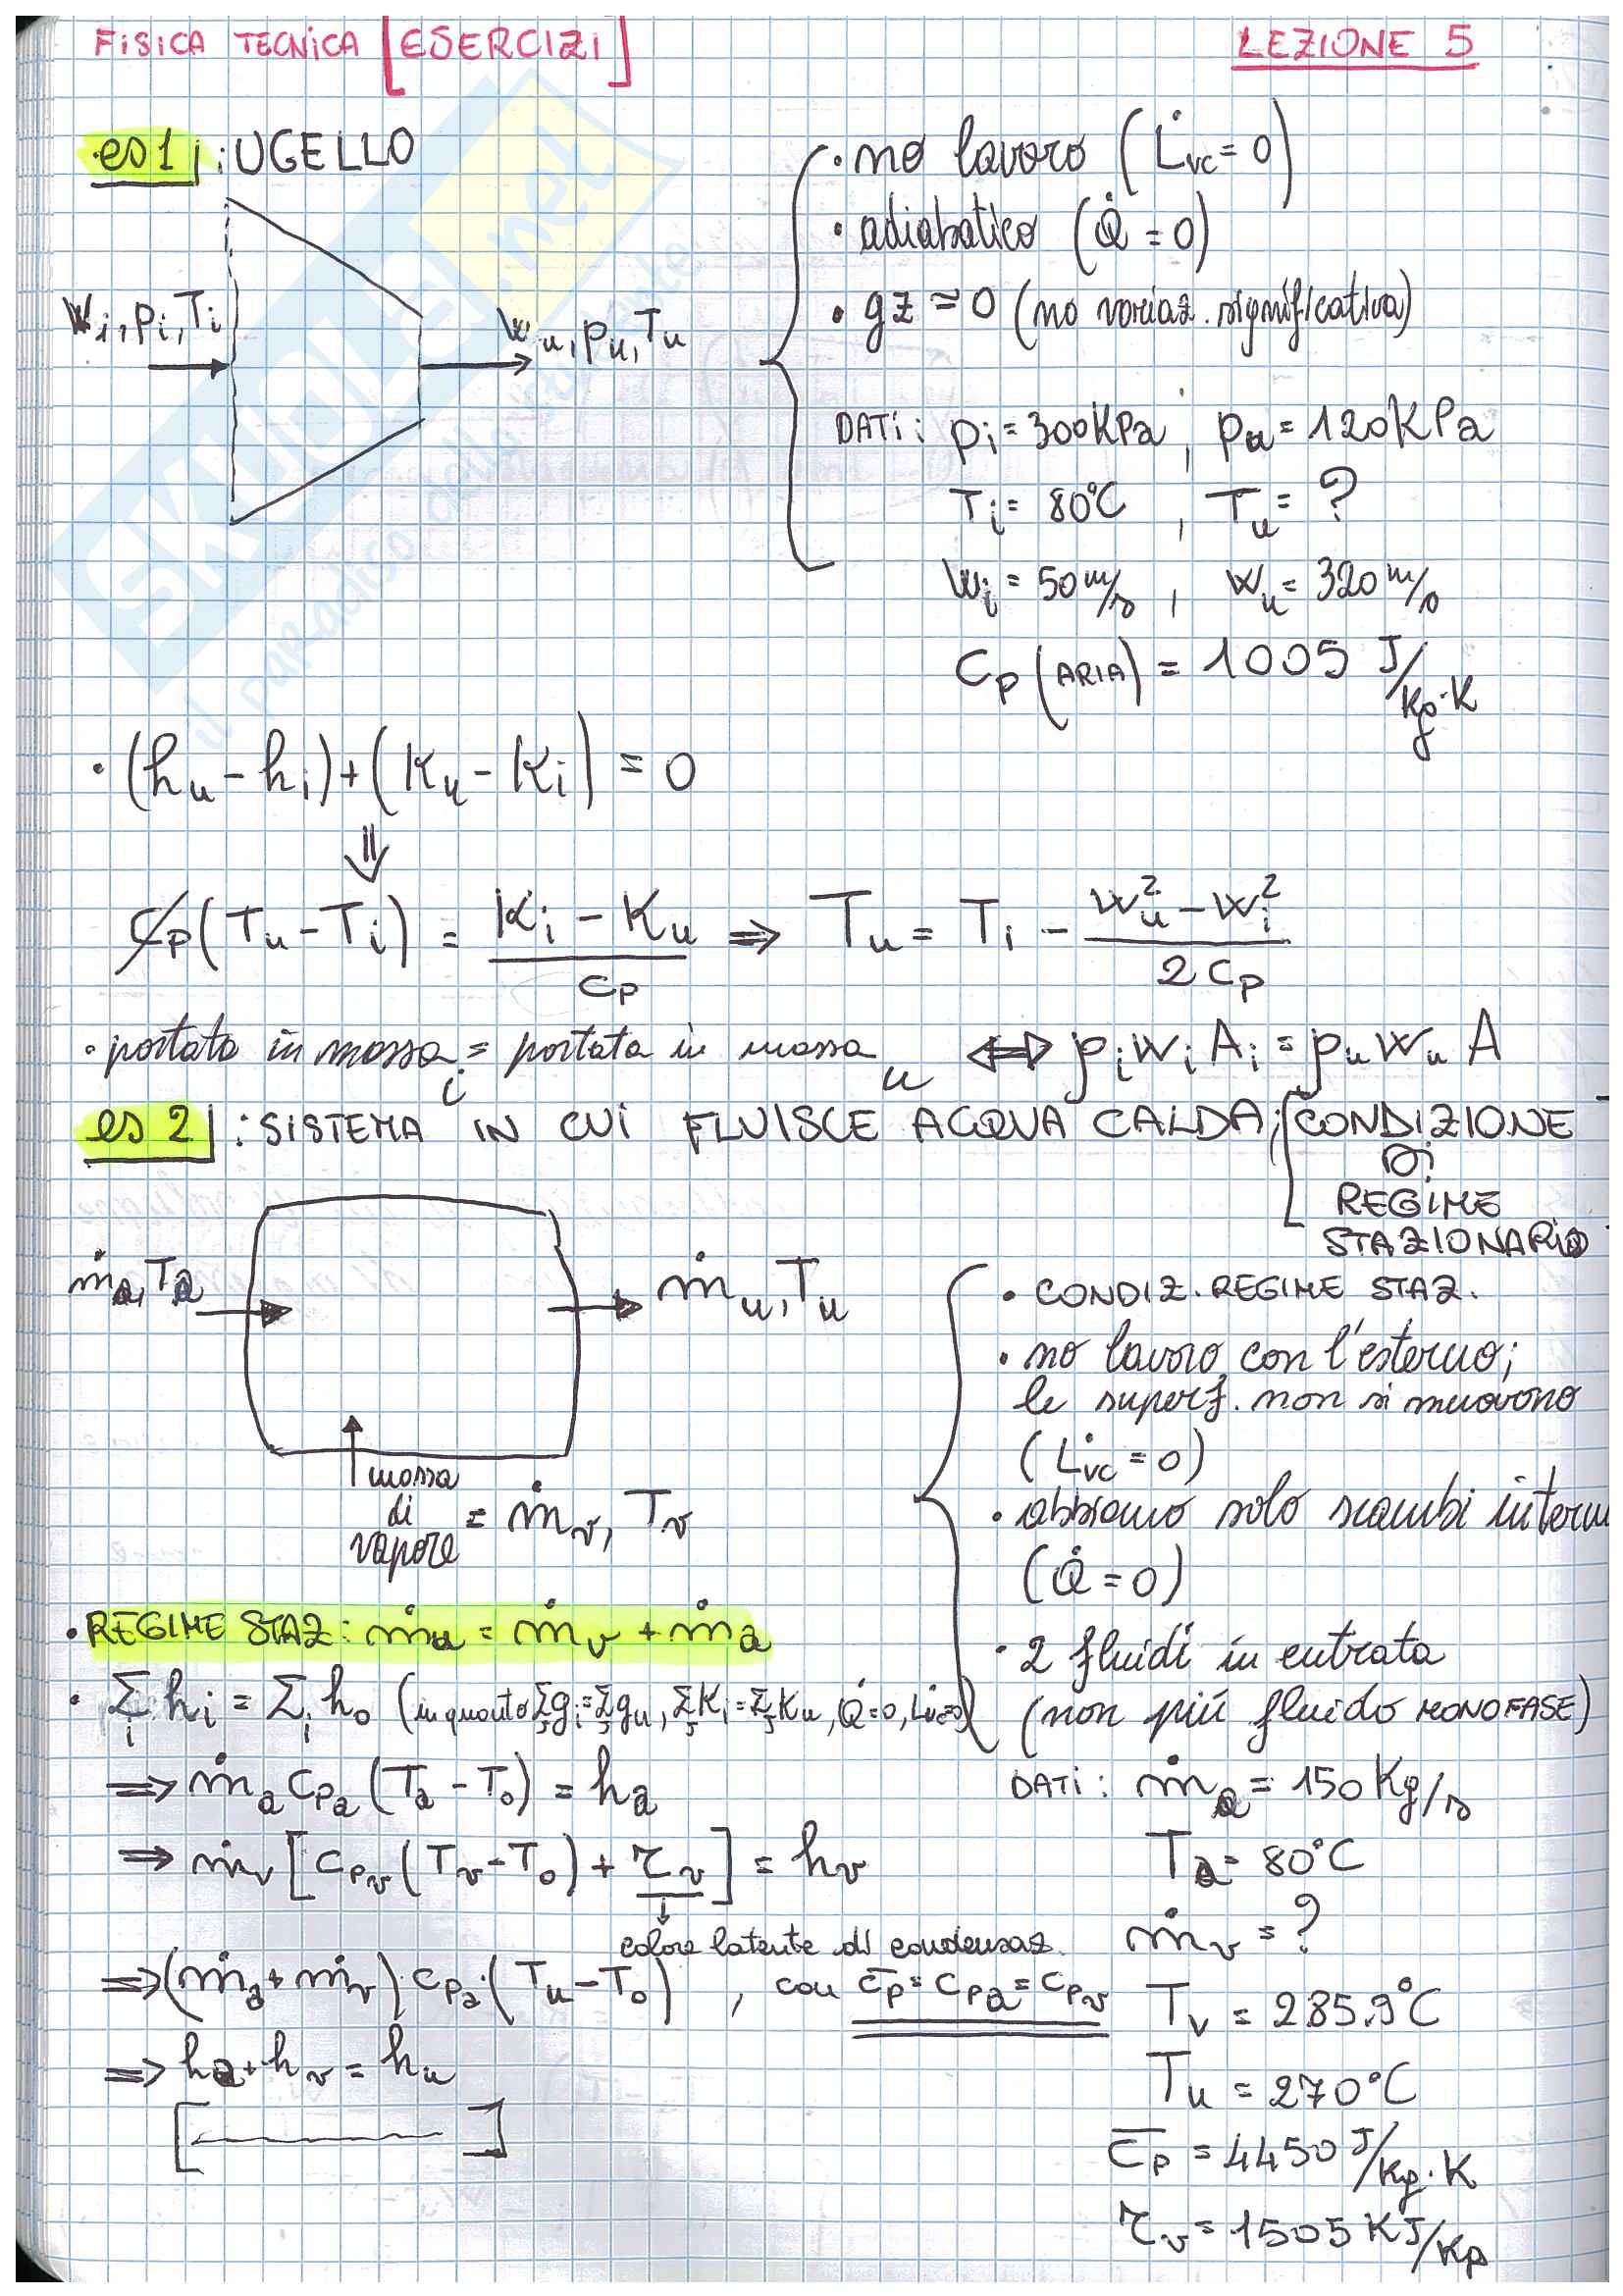 FISICA TECNICA [ESERCIZI]
LEZIONE 5
es 1 : UGELLO
wi, pi, Ti
wu, pu, Tu
• no lavoro (L̇vc = 0)
• adiabatico (Q̇ = 0)
• gz ≈ 0 (no variaz. significativa)
DATI: pi = 300 KPa, pu = 120 KPa
Ti = 80°C, Tu = ?
wi = 50 m/s, wu = 320 m/s
Cp (ARIA) = 1005 J/Kg·K
• (hu - hi) + (Ku - Ki) = 0
⇓
Cp (Tu - Ti) = (Ki - Ku)/Cp ⇒ Tu = Ti - (wu² - wi²)/2Cp
• portata in massa i = portata in massa u ⇔ ρi wi Ai = ρu wu A
es 2 : SISTEMA IN CUI FLUISCE ACQUA CALDA; [CONDIZIONE
DI
REGIME
STAZIONARIO
ṁa, Ta
ṁu, Tu
massa
di
vapore = ṁv, Tv
• CONDIZ. REGIME STAZ.
• no lavoro con l'esterno;
le superf. non si muovono
(L̇vc = 0)
• abbiamo solo scambi interni
(Q̇ = 0)
• 2 fluidi in entrata
(non più fluido MONOFASE)
• REGIME STAZ: ṁu = ṁv + ṁa
• Σi hi = Σi ho (in quanto Σgi = Σgu, ΣKi = ΣKu, Q̇ = 0, L̇vc = 0)
⇒ ṁa Cpa (Ta - To) = ha
⇒ ṁv [Cpv (Tv - To) + rv] = hv
calore latente di condensaz.
⇒ (ṁa + ṁv) · Cpa · (Tu - To), con C̄p = Cpa = Cpv
⇒ ha + hv = hu
[ ]
DATI: ṁa = 150 Kg/s
Ta = 80°C
ṁv = ?
Tv = 285.9°C
Tu = 270°C
C̄p = 4450 J/Kg·K
rv = 1505 KJ/Kg
SKUOLA.net
il paradiso dello studente